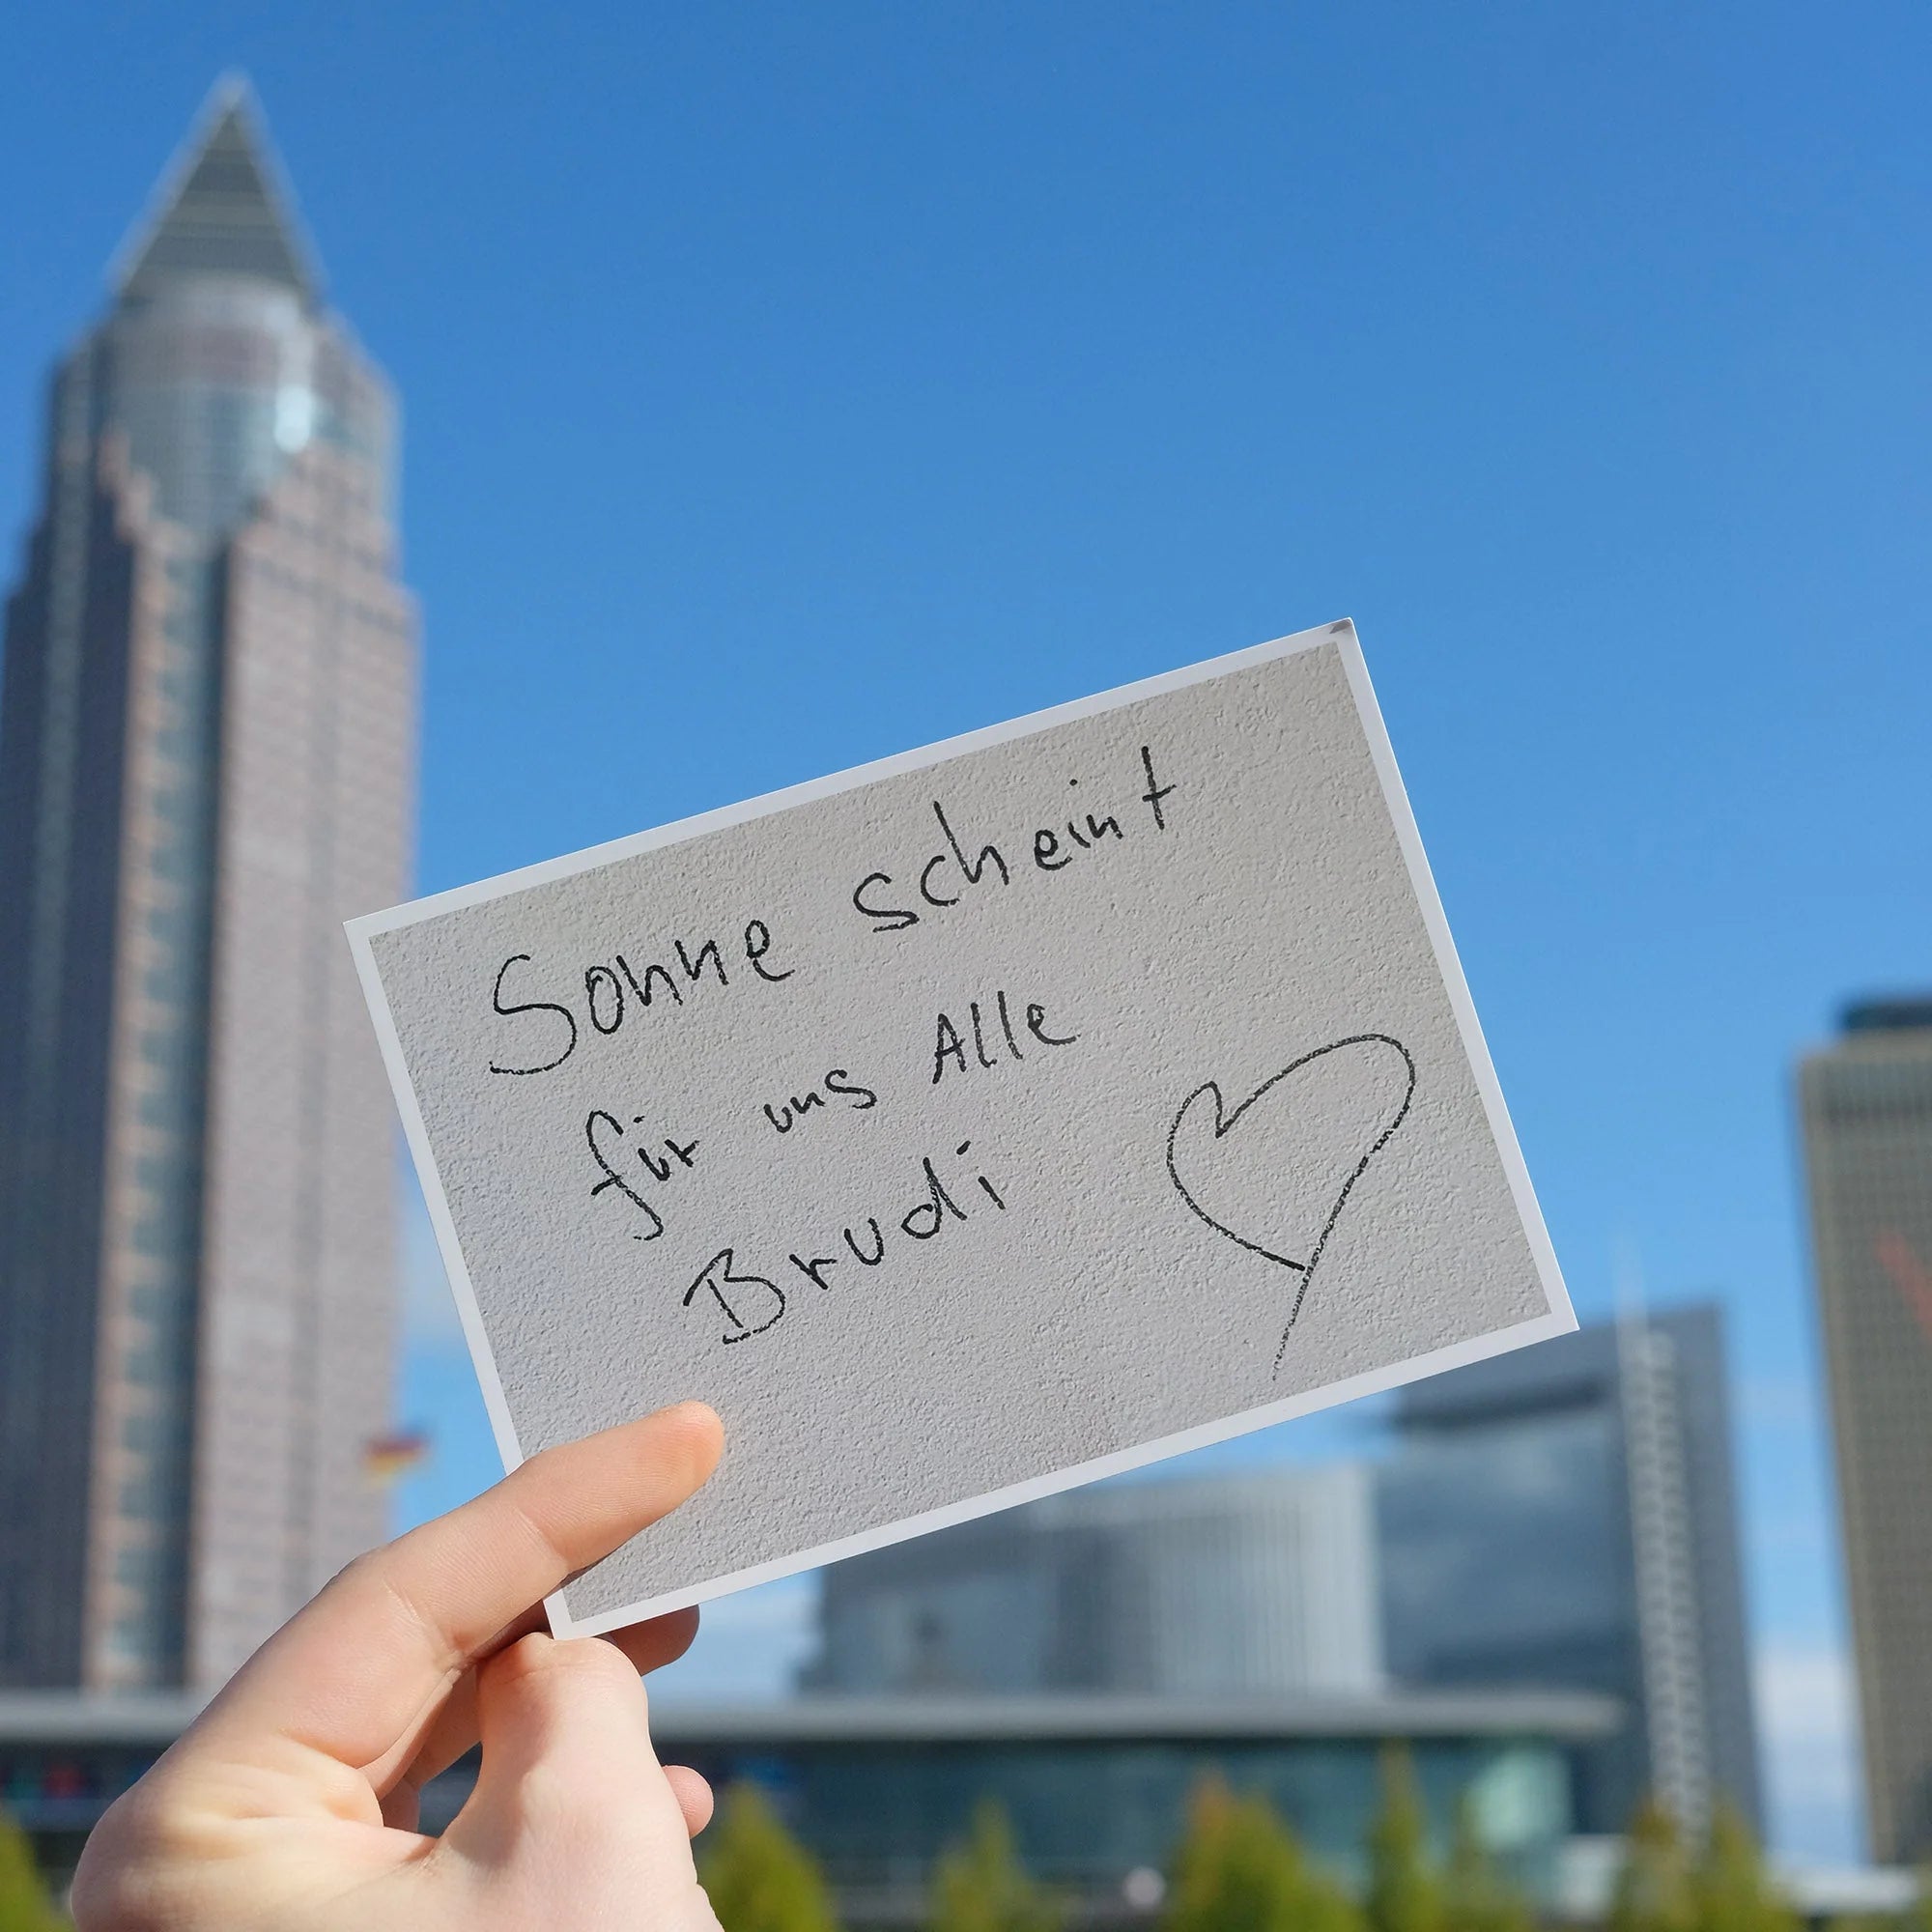 Sonne scheint
für uns Alle
Brudi